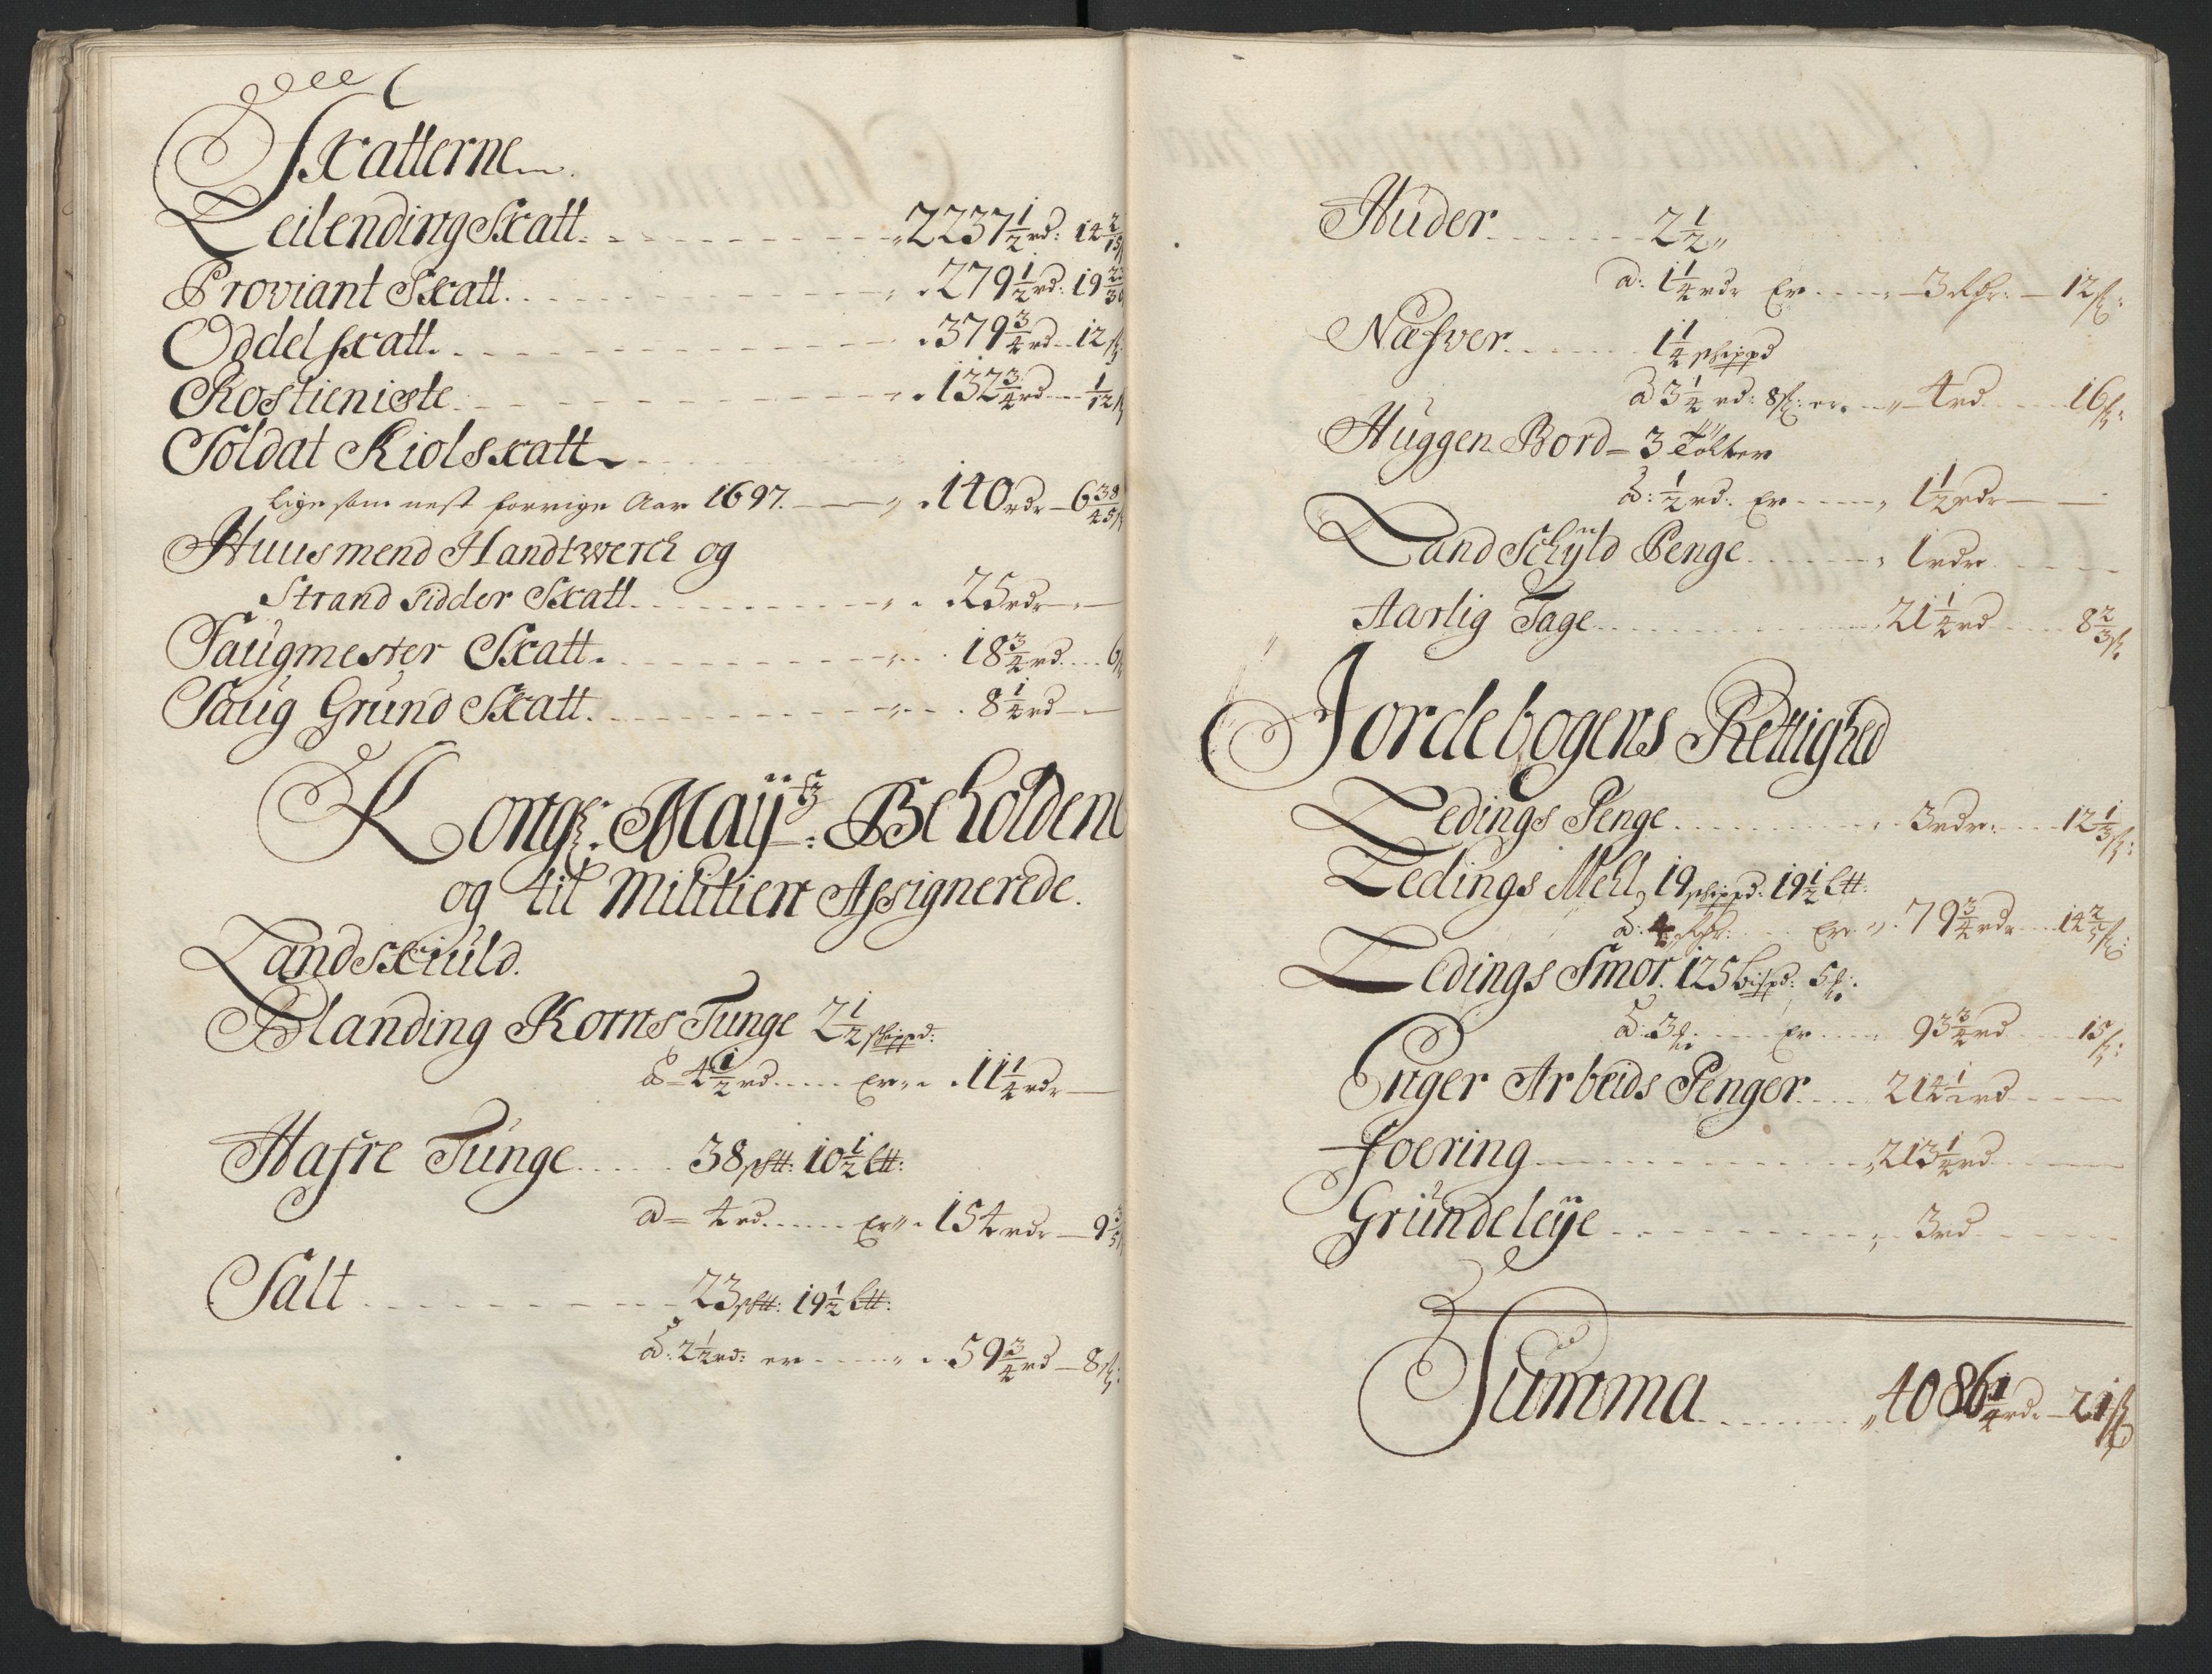 Skatterne
Leilending Skatt. 2237 1/2 rd: 14 2/15
Proviant Skatt. 279 1/2 rd: 19 23/30
Oddel skatt. 379 3/4 rd 12 s
Rostieniste 132 3/4 rd 1/12 s
Soldat Kiolskatt
lige som nest forrige Aar 1697. 140 rdr 6 38/45 s
Huusmend Handtwerch og
Strand sidder Skatt 25 rdr
Saugmester Skatt. 18 3/4 rd 6 s
Saug Grund Skatt. 8 1/4 rd
Kongl: Mayts: Beholdene
og til Militien Assignerede.
Landskiuld.
Blanding Korns Tunge 2 1/2 schippd:
a 4 1/2 rd Er 11 1/4 rdr
Hafre Tunge 38 schtt: 10 1/2 ltt:
a 4 rd Er 154 rdr 9 3/5
Salt 23 schtt: 19 1/2 ltt:
a: 2 1/2 rd: er 59 3/4 rd 8 s:
Huder 2 1/2
a: 1 1/4 rdr Er 3 Rdr: 12 s:
Næfver 1 1/4 schippd
a 3 1/2 rd: 8 s: er 4 rd 16 s:
Huggen Bord 3 Tolter
a: 1/2 rd: Er 1 1/2 rdr
Land Schyld Penge 1 rdr
Aarlig Tage 21 1/4 rd 8 2/3 s
Jordebogens Rettighed
Ledings Penge 3 rdr: 12 1/3 s:
Ledings Mehl 19 schippd: 19 1/2 ltt:
a: 4 Rdr: Er 79 3/4 rdr 14 2/5 s:
Ledings Smør. 125 bispd: 5
a: 3 Er 93 3/4 rd 15 s:
Enger Arbeids Penger 214 1/2 rd
Foering 213 1/2 rd
Grundeleye 3 rd
Summa 4086 1/4 rd 21 s